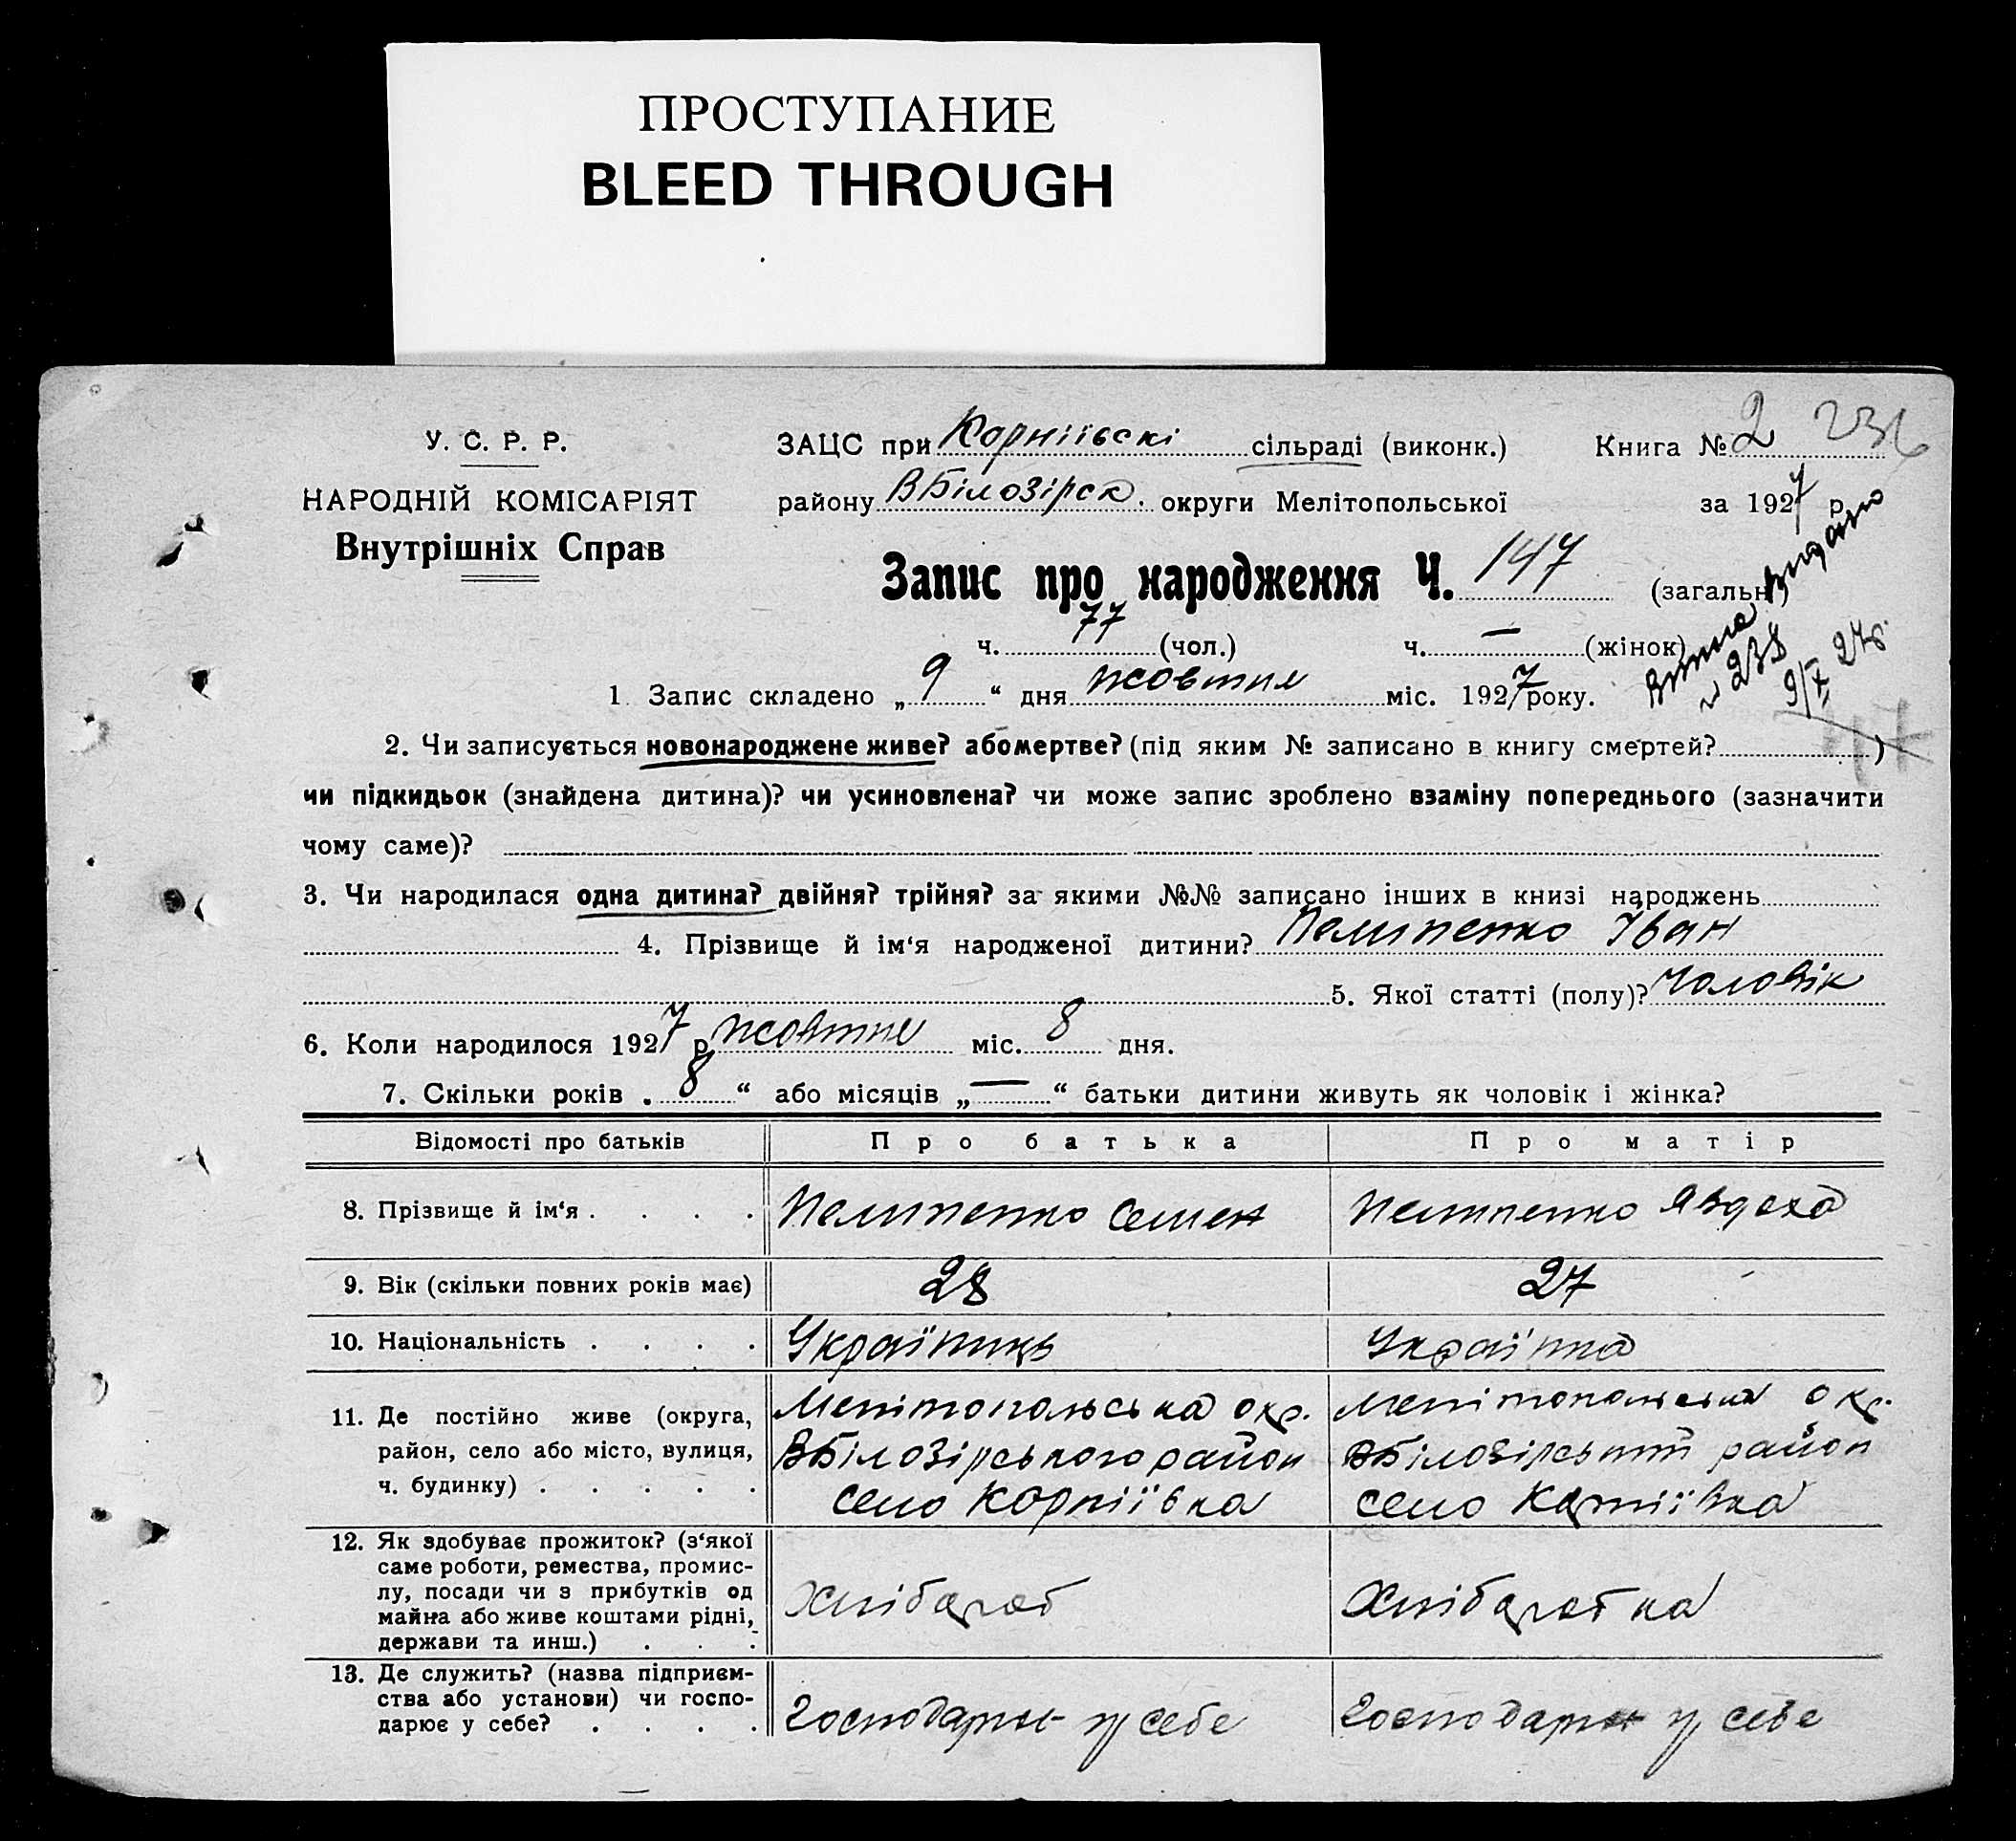 ПРОСТУПАНИЕ
BLEED THROUGH
У. С. Р. Р.
НАРОДНІЙ КОМІСАРІЯТ
Внутрішніх Справ
ЗАЦС при Корніївскі сільраді (виконк.) Книга № 2 236
району ВБілозірск. округи Мелітопольської за 1927 р.
Запис про народження Ч. 147 (загальн.)
ч. 77 (чол.) ч. — (жінок)
Видано
№ 238
9/X 27р.
1. Запис складено „ 9 “ дня жовтня міс. 1927 року.
2. Чи записується новонароджене живе? або мертве? (під яким № записано в книгу смертей? )
чи підкидьок (знайдена дитина)? чи усиновлена? чи може запис зроблено взаміну попереднього (зазначити
чому саме)?
3. Чи народилася одна дитина? двійня? трійня? за якими №№ записано інших в книзі народжень
4. Прізвище й ім‘я народженої дитини? Пелипенко Іван
5. Якої статті (полу)? Чоловік
6. Коли народилося 1927 р. жовтня міс. 8 дня.
7. Скільки років „ 8 “ або місяців „ — “ батьки дитини живуть як чоловік і жінка?
Відомості про батьків Про батька Про матір
8. Прізвище й ім‘я . . . . Пелипенко Семен Пелипенко Явдоха
9. Вік (скільки повних років має) 28 27
10. Національність . . . . Українець Українка
11. Де постійно живе (округа, Мелітопольська окр. Мелітопольська окр.
район, село або місто, вулиця, ВБілозірського район ВБілозірський район
ч. будинку) . . . . . село Корніївка село Корніївка
12. Як здобуває прожиток? (з‘якої
саме роботи, ремества, промис-
лу, посади чи з прибутків од Хлібороб Хлібороб ка
майна або живе коштами рідні,
держави та инш.) . . .
13. Де служить? (назва підприєм-
ства або установи) чи госпо- Господарює у себе Господарює у себе
дарює у себе? . . . .